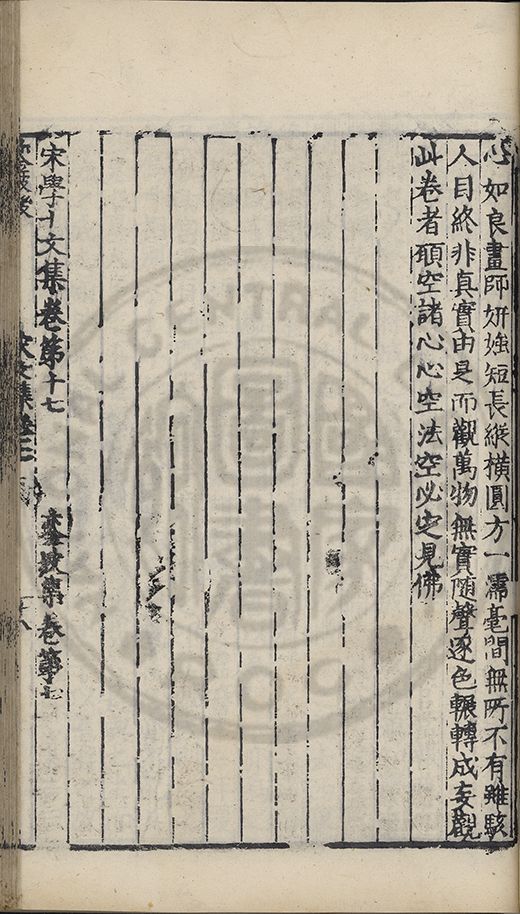 心如良畫師妍媸短長縱橫圓方一濡毫間無所不有雖駭
人目終非真實由是而觀萬物無實隨聲逐色輾轉成妄觀
此卷者頋空諸心心空法空必定見佛
宋學士文集卷第十七
鑾坡集卷第七